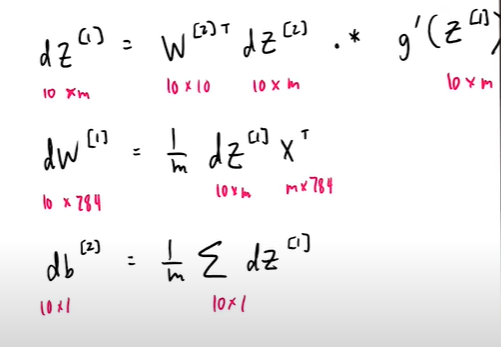 dz^[1] = W^[2]T dz^[2] .* g'(z^[1])
10 x m 10 x 10 10 x m 10 x m
dW^[1] = 1/m dz^[1] X^T
10 x 784 10 x m m x 784
db^[2] = 1/m Σ dz^[1]
10 x 1 10 x 1